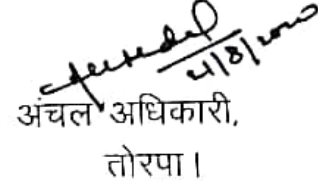 21/8/2020
अंचल अधिकारी,
तोरपा।